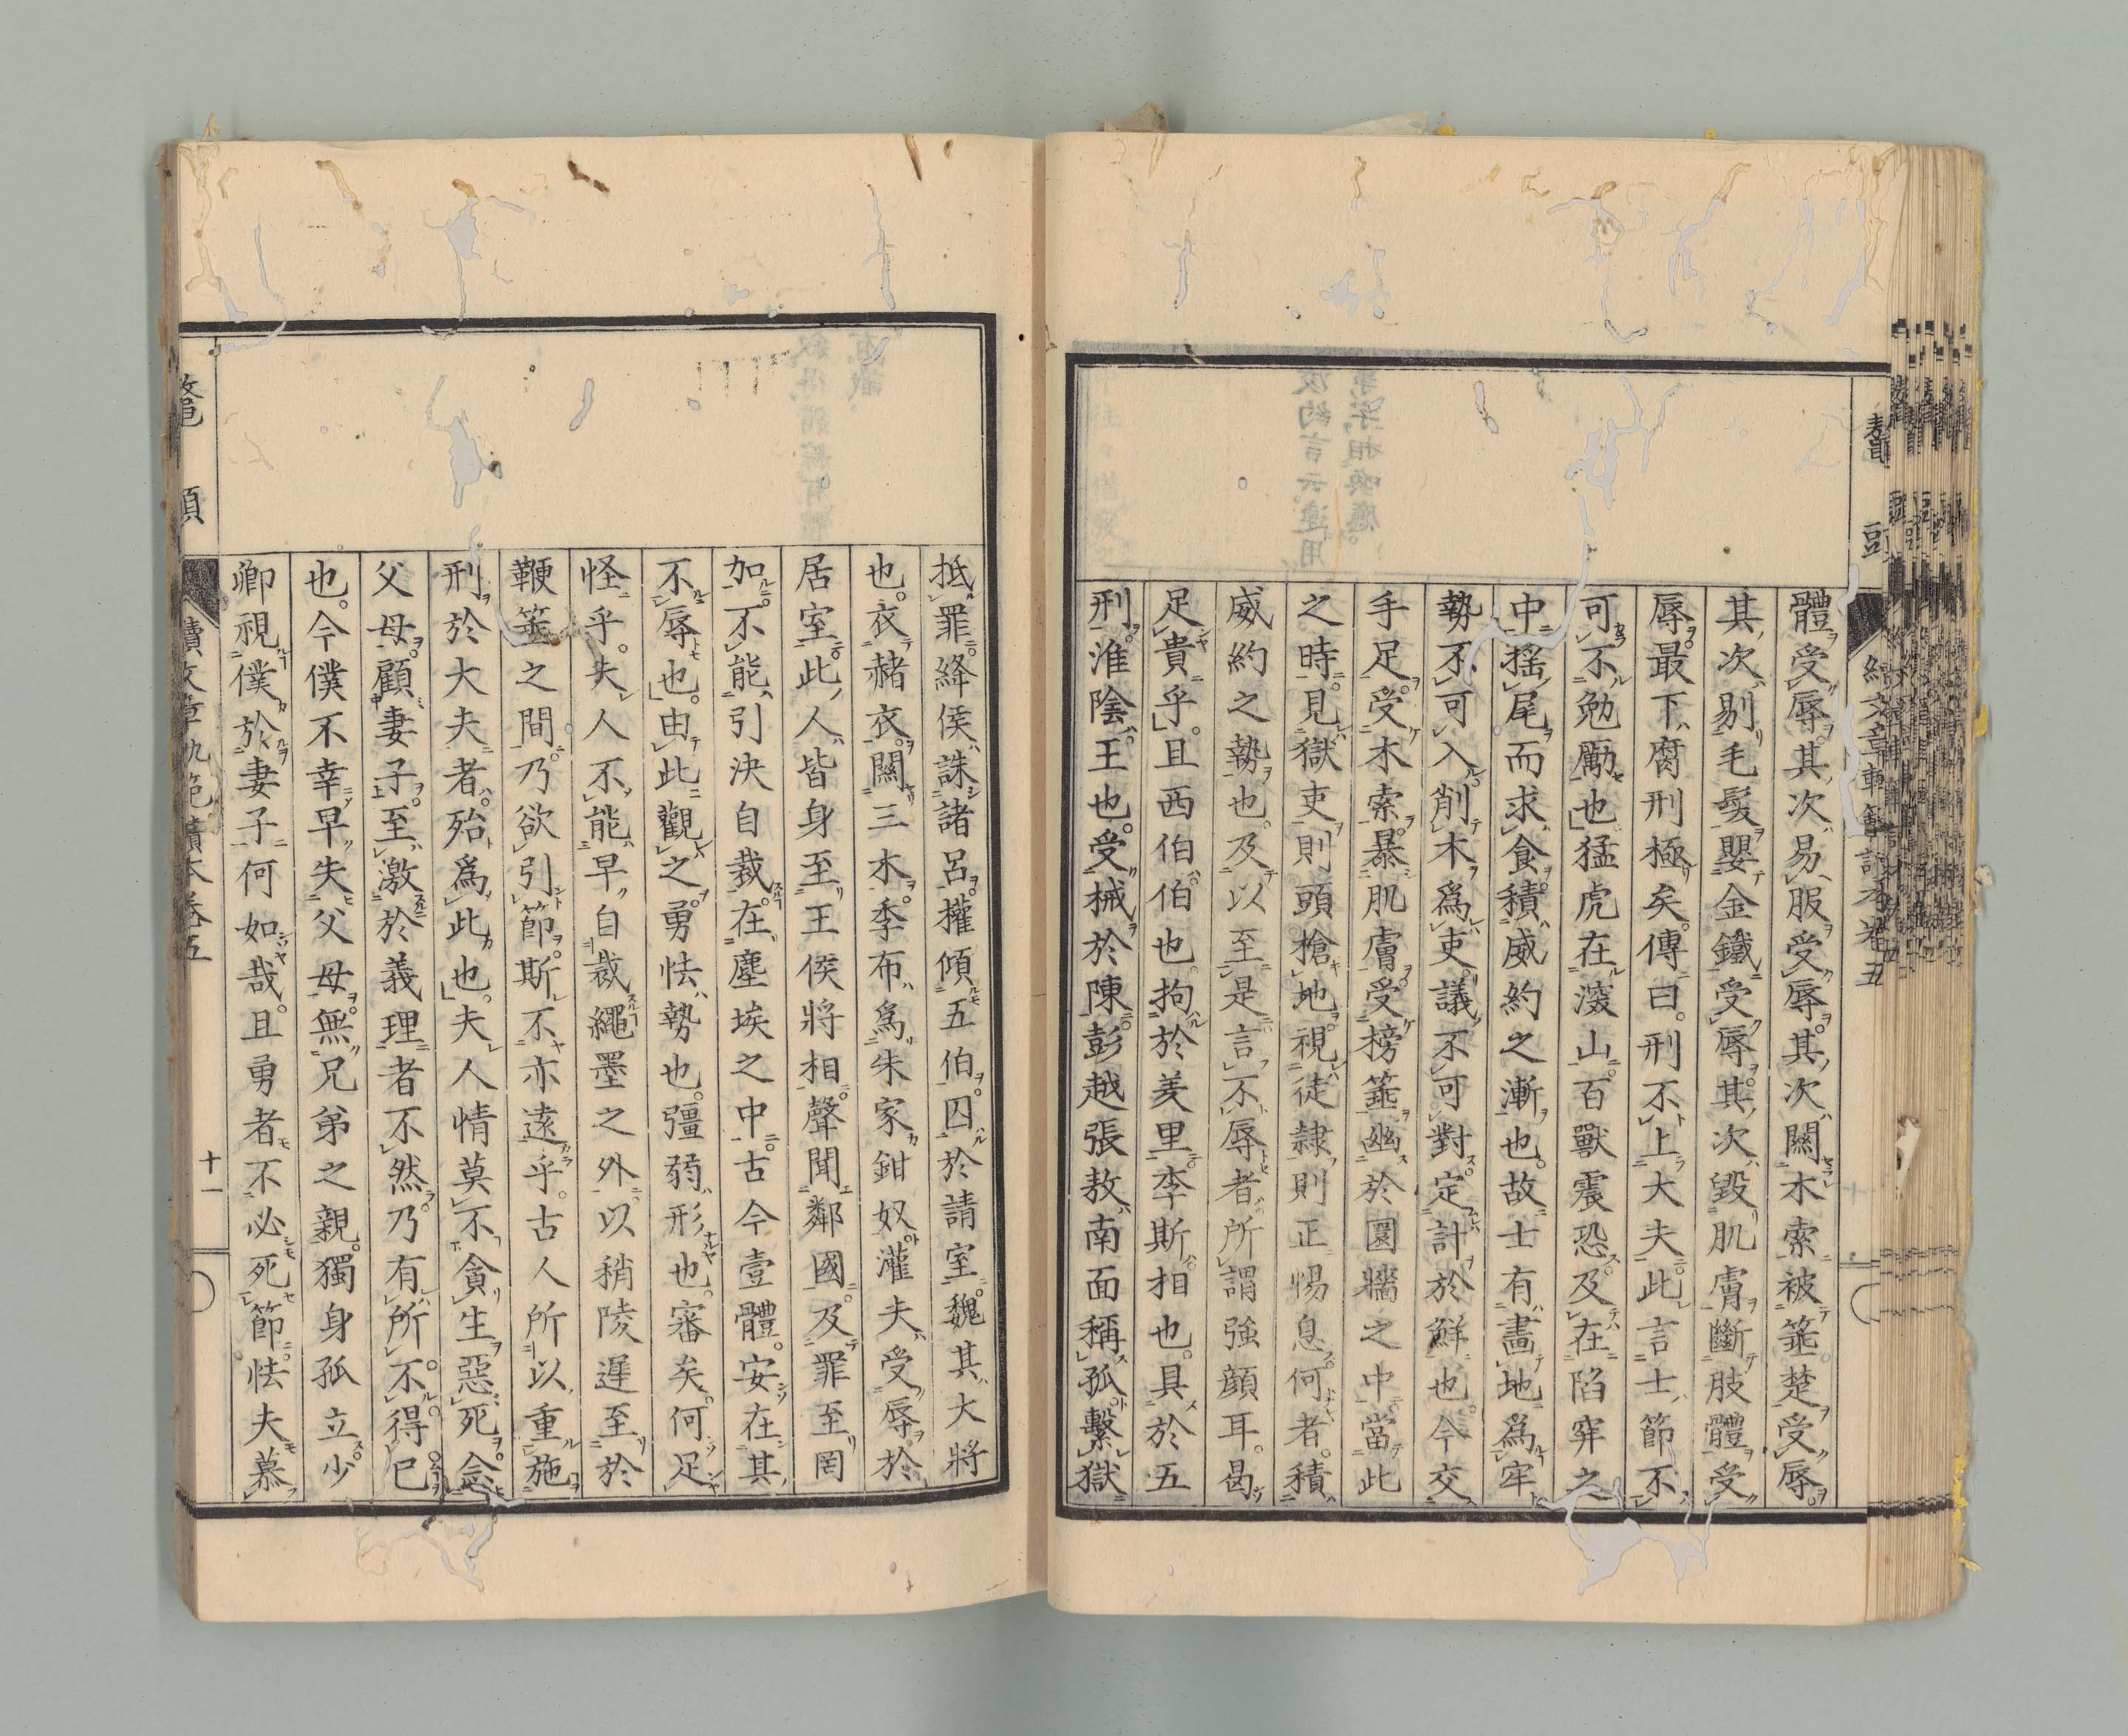 體受辱。其次易服受辱。其次關木索被箠楚受辱。
其次剔毛髮嬰金鐵受辱。其次毀肌膚斷肢體受
辱。最下腐刑極矣。傳曰。刑不上大夫。此言士節不
可不勉勵也。猛虎在深山。百獸震恐。及在陷穽之
中。搖尾而求食。積威約之漸也。故士有畫地爲牢
勢不可入。削木爲吏。議不可對。定計於鮮也。今交
手足。受木索。暴肌膚。受榜箠。幽於圜牆之中。當此
之時。見獄吏則頭槍地。視徒隷則正惕息。何者。積
威約之勢也。及以至是。言不辱者。所謂強顔耳。曷
足貴乎。且西伯伯也。拘於羑里。李斯相也。具於五
刑。淮陰王也。受械於陳。彭越張敖南面稱孤。繫獄
抵罪。絳侯誅諸呂。權傾五伯。囚於請室。魏其大將
也。衣赭衣。關三木。季布爲朱家鉗奴。灌夫受辱於
居室。此人皆身至王侯將相。聲聞鄰國。及罪至罔
加。不能引決自裁。在塵埃之中。古今壹體。安在其
不辱也。由此觀之。勇怯勢也。彊弱形也。審矣。何足
怪乎。夫人不能早自裁繩墨之外。以稍陵遲至於
鞭箠之間。乃欲引節。斯不亦遠乎。古人所以重施
刑於大夫者。殆爲此也。夫人情莫不貪生惡死。念
父母。顧妻子。至激於義理者不然。乃有所不得已
也。今僕不幸早失父母。無兄弟之親。獨身孤立。少
卿視僕於妻子何如哉。且勇者不必死節。怯夫慕
十一